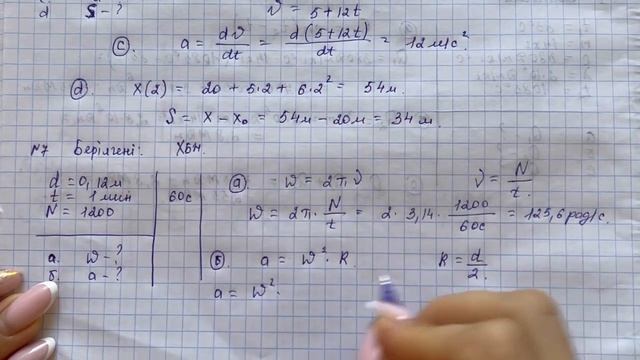 d S - ? v = 5 + 12t
c. a = dv/dt = d(5+12t)/dt = 12 м/с²
d. x(2) = 20 + 5·2 + 6·2² = 54м.
S = x - x₀ = 54м - 20м = 34 м.
№7 Берілгені: ХБЖ.
d = 0,12м
t = 1 мин 60с
N = 1200
a. w - ?
б. a - ?
a. w = 2πν ν = N/t.
w = 2π· N/t = 2· 3,14· 1200/60с = 125,6 рад/с.
б. a = w²· R. R = d/2.
a = w²·